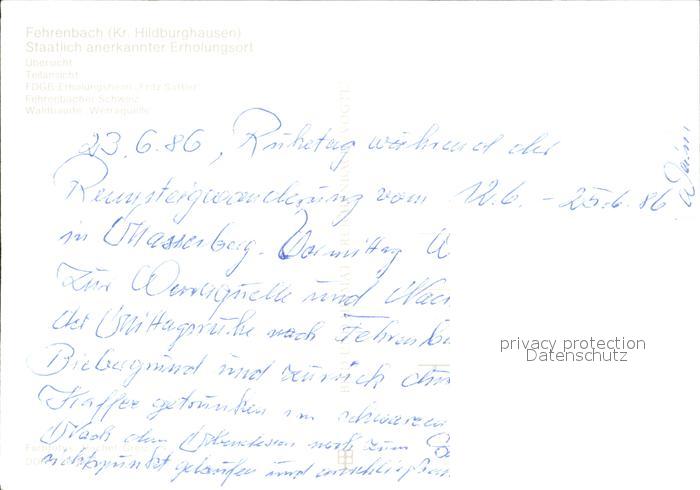 Fehrenbach (Kr. Hildburghausen)
Staatlich anerkannter Erholungsort
Übersicht
Teilansicht
FDGB-Erholungsheim „Fritz Sattler"
Fehrenbacher Schweiz
Waldbaude „Werraquelle"
23.6.86, Ruhetag während der
Rennsteigwanderung vom 12.6. - 25.6.86
in Masserberg. Vormittag W
Zur Werraquelle und Nac
der Mittagsruhe nach Fehrenb
Biebergrund und zurück
Kaffee getrunken im schwarzen
Nach dem Abendessen noch zum
gelaufen und anschließen
privacy protection
Datenschutz